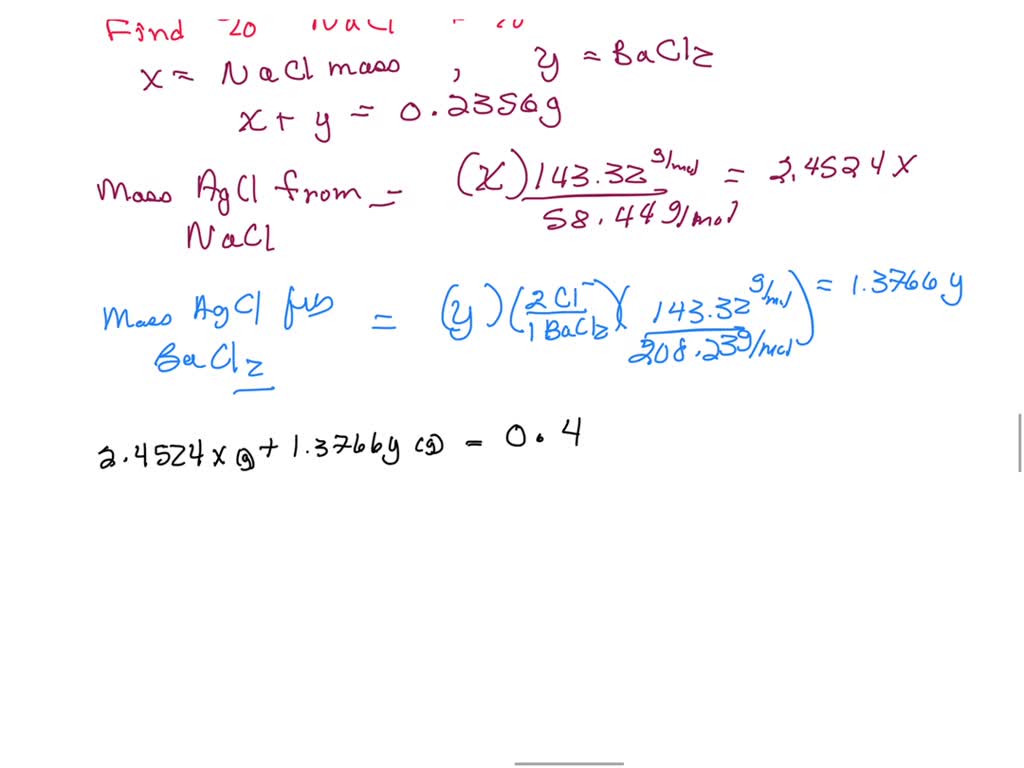 Find % NaCl + %
x = NaCl mass , y = BaCl2
x + y = 0.2356g
Mass AgCl from NaCl = (x) 143.32 g/mol / 58.44 g/mol = 2.4524 x
Mass AgCl BaCl2 = (y) (2 Cl⁻ / 1 BaCl2) (143.32 g/mol / 208.23 g/mol) = 1.3766 y
2.4524 x g + 1.3766 y (g) = 0.4